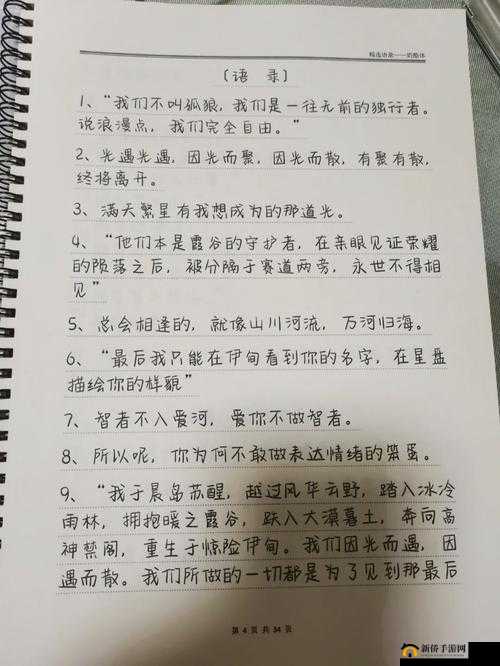 精选语录——奶酪体
〔语 录〕
1、“我们不叫孤狼，我们是一往无前的独行者。
说浪漫点，我们完全自由。”
2、光遇光遇，因光而聚，因光而散，有聚有散，
终将离开。
3、满天繁星有我想成为的那道光。
4、“他们本是霞谷的守护者，在亲眼见证荣耀
的陨落之后，被分隔于赛道两旁，永世不得相
见”
5、总会相逢的，就像山川河流，万河归海。
6、“最后我只能在伊甸看到你的名字，在星盘
描绘你的样貌”
7、智者不入爱河，爱你不做智者。
8、所以呢，你为何不敢做表达情绪的笨蛋。
9、“我于晨岛苏醒，越过风华云野，踏入冰冷
雨林，拥抱暖之霞谷，跃入大漠暮土，奔向高
神禁阁，重生于惊险伊甸。我们因光而遇，因
遇而散。我们所做的一切都是为了见到那最后
第 4 页 共 34 页
新侨手游网